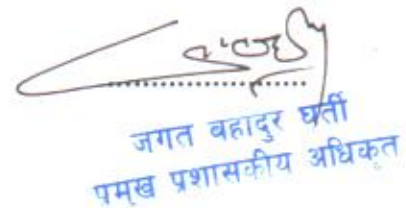 जगत बहादुर घर्ती
प्रमुख प्रशासकीय अधिकृत